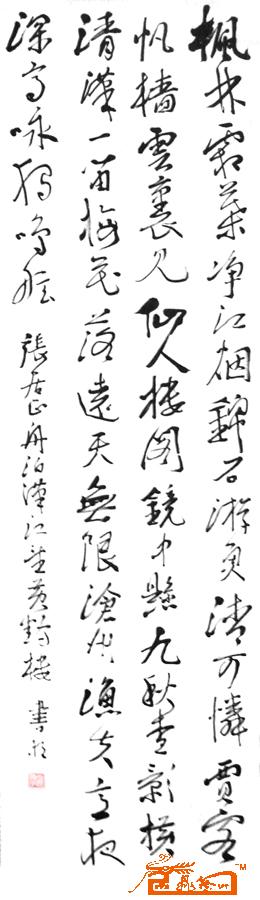 楓林霜葉净江烟錦石游魚清可憐賈客
帆檣雲裏見仙人樓閣鏡中懸九秋查影橫
清漢一笛梅花落遠天無限滄洲漁父意夜
深高詠獨鳴舷
張居正舟泊漢江望黃鶴樓 書